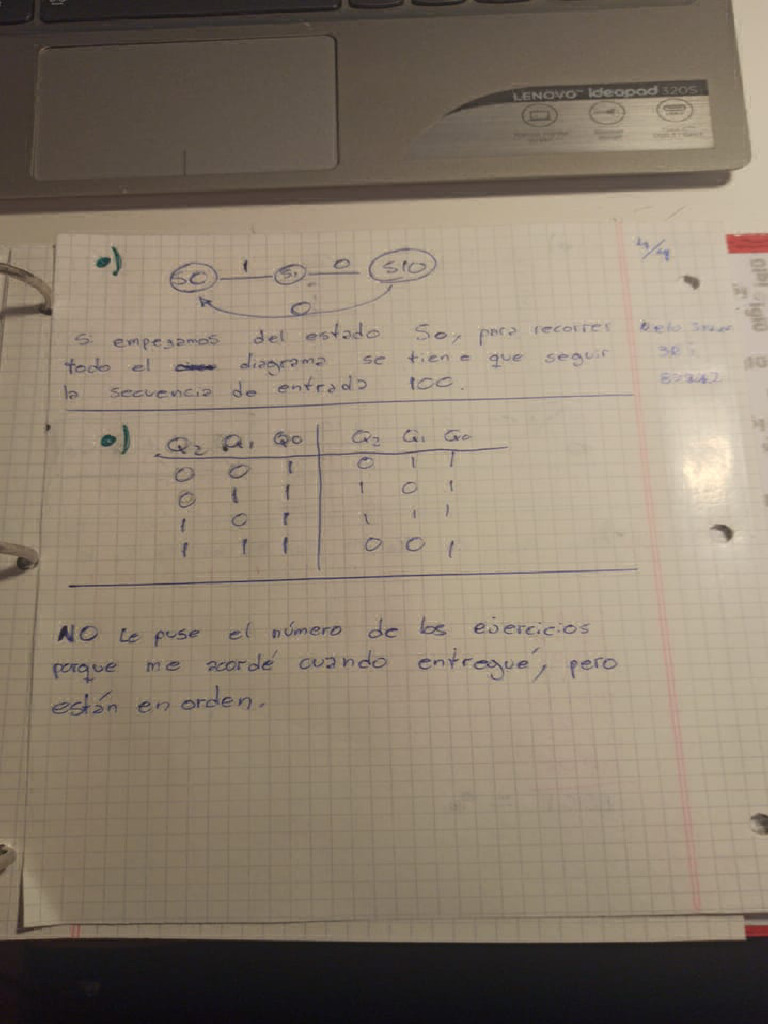 LENOVO ideapad 320S
4/4
1 0
S0 S1 S10
0
Si empezamos del estado S0, para recorrer
todo el diagrama se tiene que seguir
la secuencia de entrada 100.
Q2 Q1 Q0 Q2 Q1 Q0
0 0 1 0 1 1
0 1 1 1 0 1
1 0 1 1 1 1
1 1 1 0 0 1
NO le puse el número de los ejercicios
porque me acordé cuando entregué, pero
están en orden.